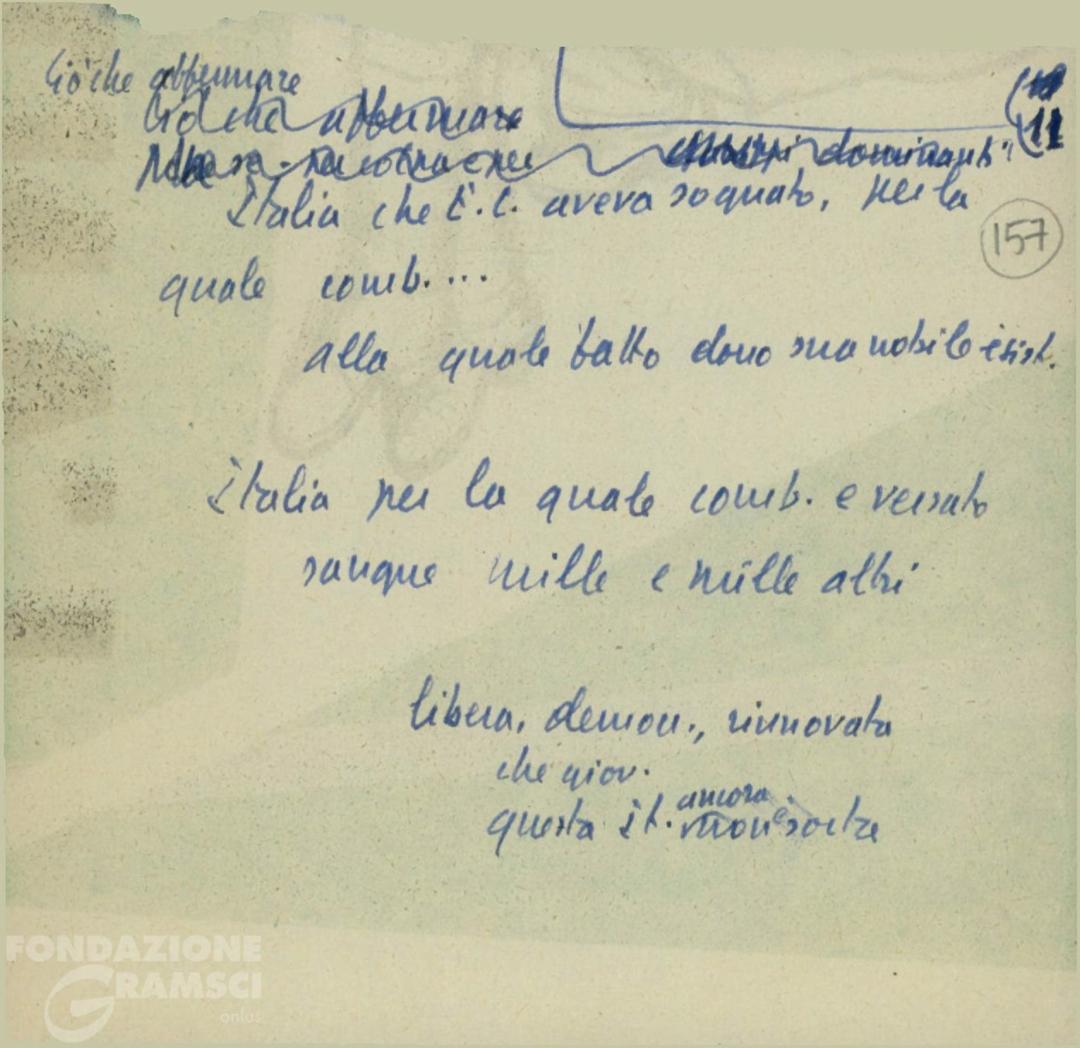 Ciò che affermare
Ciò che affermare
gruppi dominanti
(11
Italia che E.C. aveva sognato, per la
157
quale comb. ...
alla quale fatto dono sua nobile esist.
Italia per la quale comb. e versato
sangue mille e mille altri
libera, democr., rinnovata
che giov.
ancora
questa It. non è
FONDAZIONE
GRAMSCI
onlus